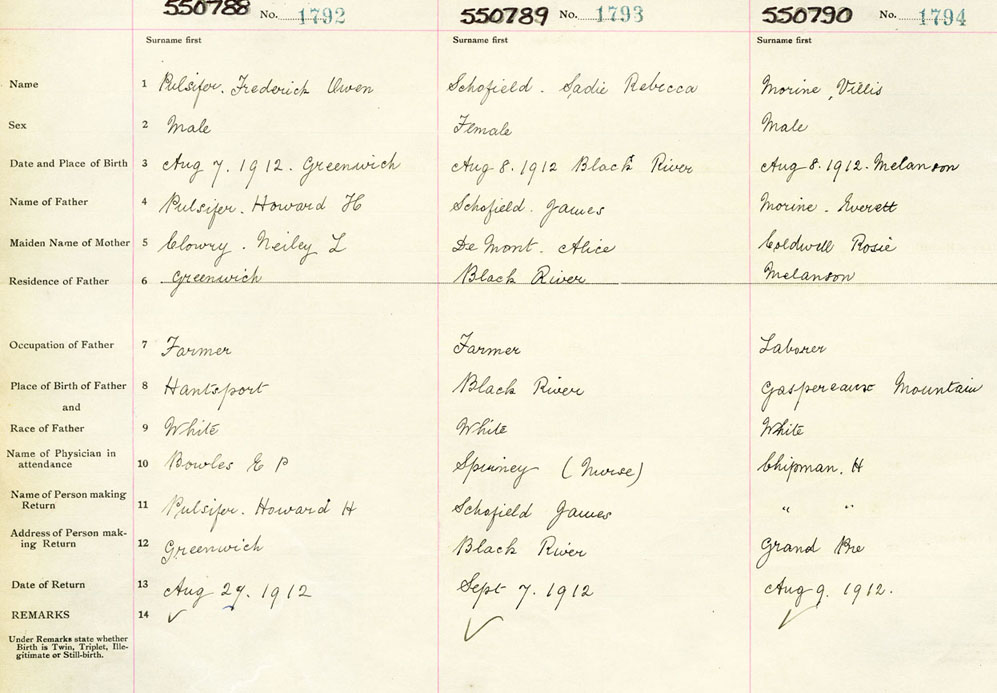 550788 No. 1792 550789 No. 1793 550790 No. 1794
Surname first Surname first Surname first
Name 1 Pulsifer. Frederick Owen Schofield. Sadie Rebecca Morine, Villis
Sex 2 Male Female Male
Date and Place of Birth 3 Aug 7. 1912. Greenwich Aug 8. 1912 Black River Aug 8. 1912. Melanson
Name of Father 4 Pulsifer. Howard H Schofield. James Morine. Everett
Maiden Name of Mother 5 Clowry. Neiley L De Mont. Alice Coldwell Rosie
Residence of Father 6 Greenwich Black River Melanson
Occupation of Father 7 Farmer Farmer Laborer
Place of Birth of Father 8 Hantsport Black River Gaspereaux Mountain
and
Race of Father 9 White White White
Name of Physician in
attendance 10 Bowles E P Spinney (Nurse) Chipman. H
Name of Person making
Return 11 Pulsifer. Howard H Schofield James " "
Address of Person mak-
ing Return 12 Greenwich Black River Grand Pre
Date of Return 13 Aug 29. 1912 Sept 7. 1912 Aug 9. 1912.
REMARKS 14 ✓ ✓ ✓
Under Remarks state whether
Birth is Twin, Triplet, Ille-
gitimate or Still-birth.